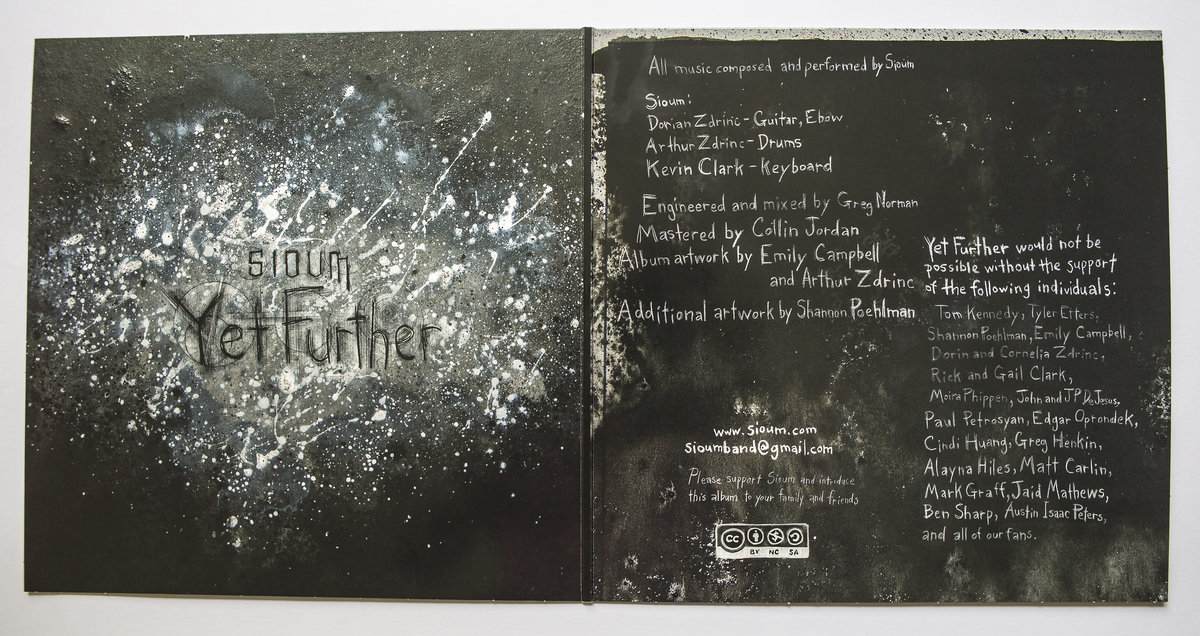 sioum
Yet Further
All music composed and performed by Sioum
Sioum:
Dorian Zdrinc - Guitar, Ebow
Arthur Zdrinc - Drums
Kevin Clark - Keyboard
Engineered and mixed by Greg Norman
Mastered by Collin Jordan
Album artwork by Emily Campbell
and Arthur Zdrinc
Additional artwork by Shannon Poehlman
www.sioum.com
sioumband@gmail.com
Please support Sioum and introduce
this album to your family and friends
cc
BY NC SA
Yet Further would not be
possible without the support
of the following individuals:
Tom Kennedy, Tyler Etters,
Shannon Poehlman, Emily Campbell,
Dorin and Cornelia Zdrinc,
Rick and Gail Clark,
Moira Phippen, John and JP DeJesus,
Paul Petrosyan, Edgar Oprondek,
Cindi Huang, Greg Henkin,
Alayna Hiles, Matt Carlin,
Mark Graff, Jaid Mathews,
Ben Sharp, Austin Isaac Peters,
and all of our fans.